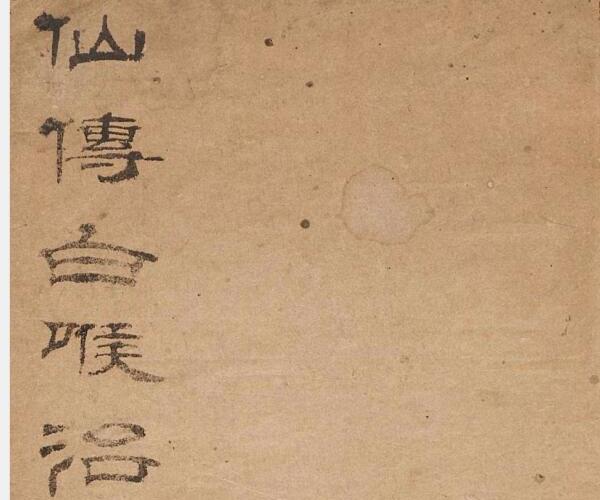 仙傳白喉治